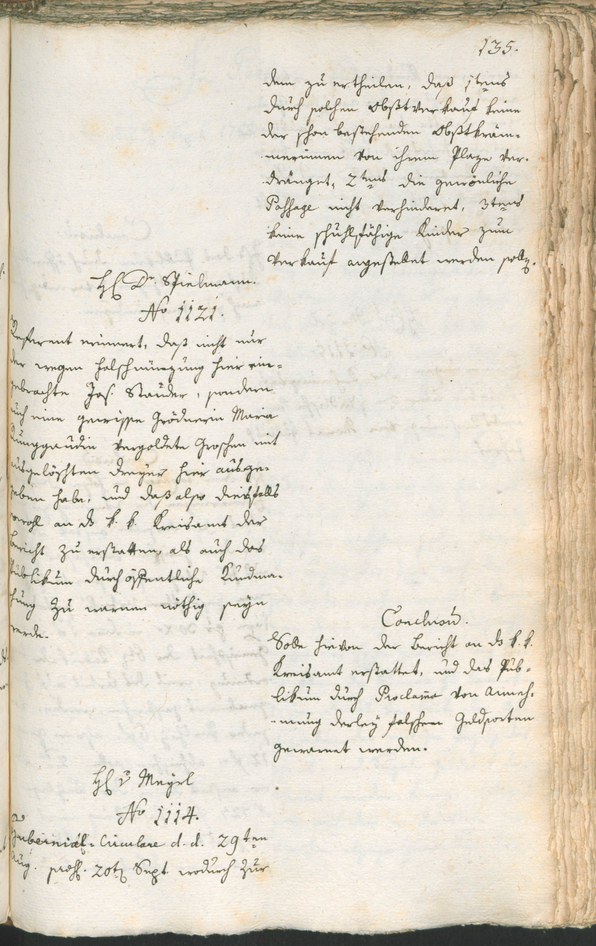 135.
dem zu ertheilen, daß 1tens
durch solchen Obstverkauf keine
der schon bestehenden Obstkräm-
merinnen von ihrem Plaze ver-
dränget, 2tens die gewönliche
Passage nicht verhinderet, 3tens
keine schuhlfähige Kinder zum
Verkauf angestellet werden solle.
H Dr Spielmann.
No 1121.
Referent erinnert, daß nicht nur
der wegen Falschmünzung hier ein-
gebrachte Jos. Stauder, sondern
auch eine gewisse Grödnerin Maria
vergoldete Groschen mit
ausgelöschten Dreyer hier ausge-
geben habe, und daß also diesfalls
sowohl an ds k. k. Kreisamt der
Bericht zu erstatten, als auch das
Publikum durch öffentliche Kundma-
chung zu warnen nöthig seyn
werde.
Conclusum.
Solle hievon der Bericht an ds k. k.
Kreisamt erstattet, und das Pub-
likum durch Proclama von Anneh-
mung derley falschen Geldsorten
gewarnet werden.
H v Mayrl
No 1114.
Gubernial-Circulare d. d. 29ten
Aug. 20t Sept. wodurch zur